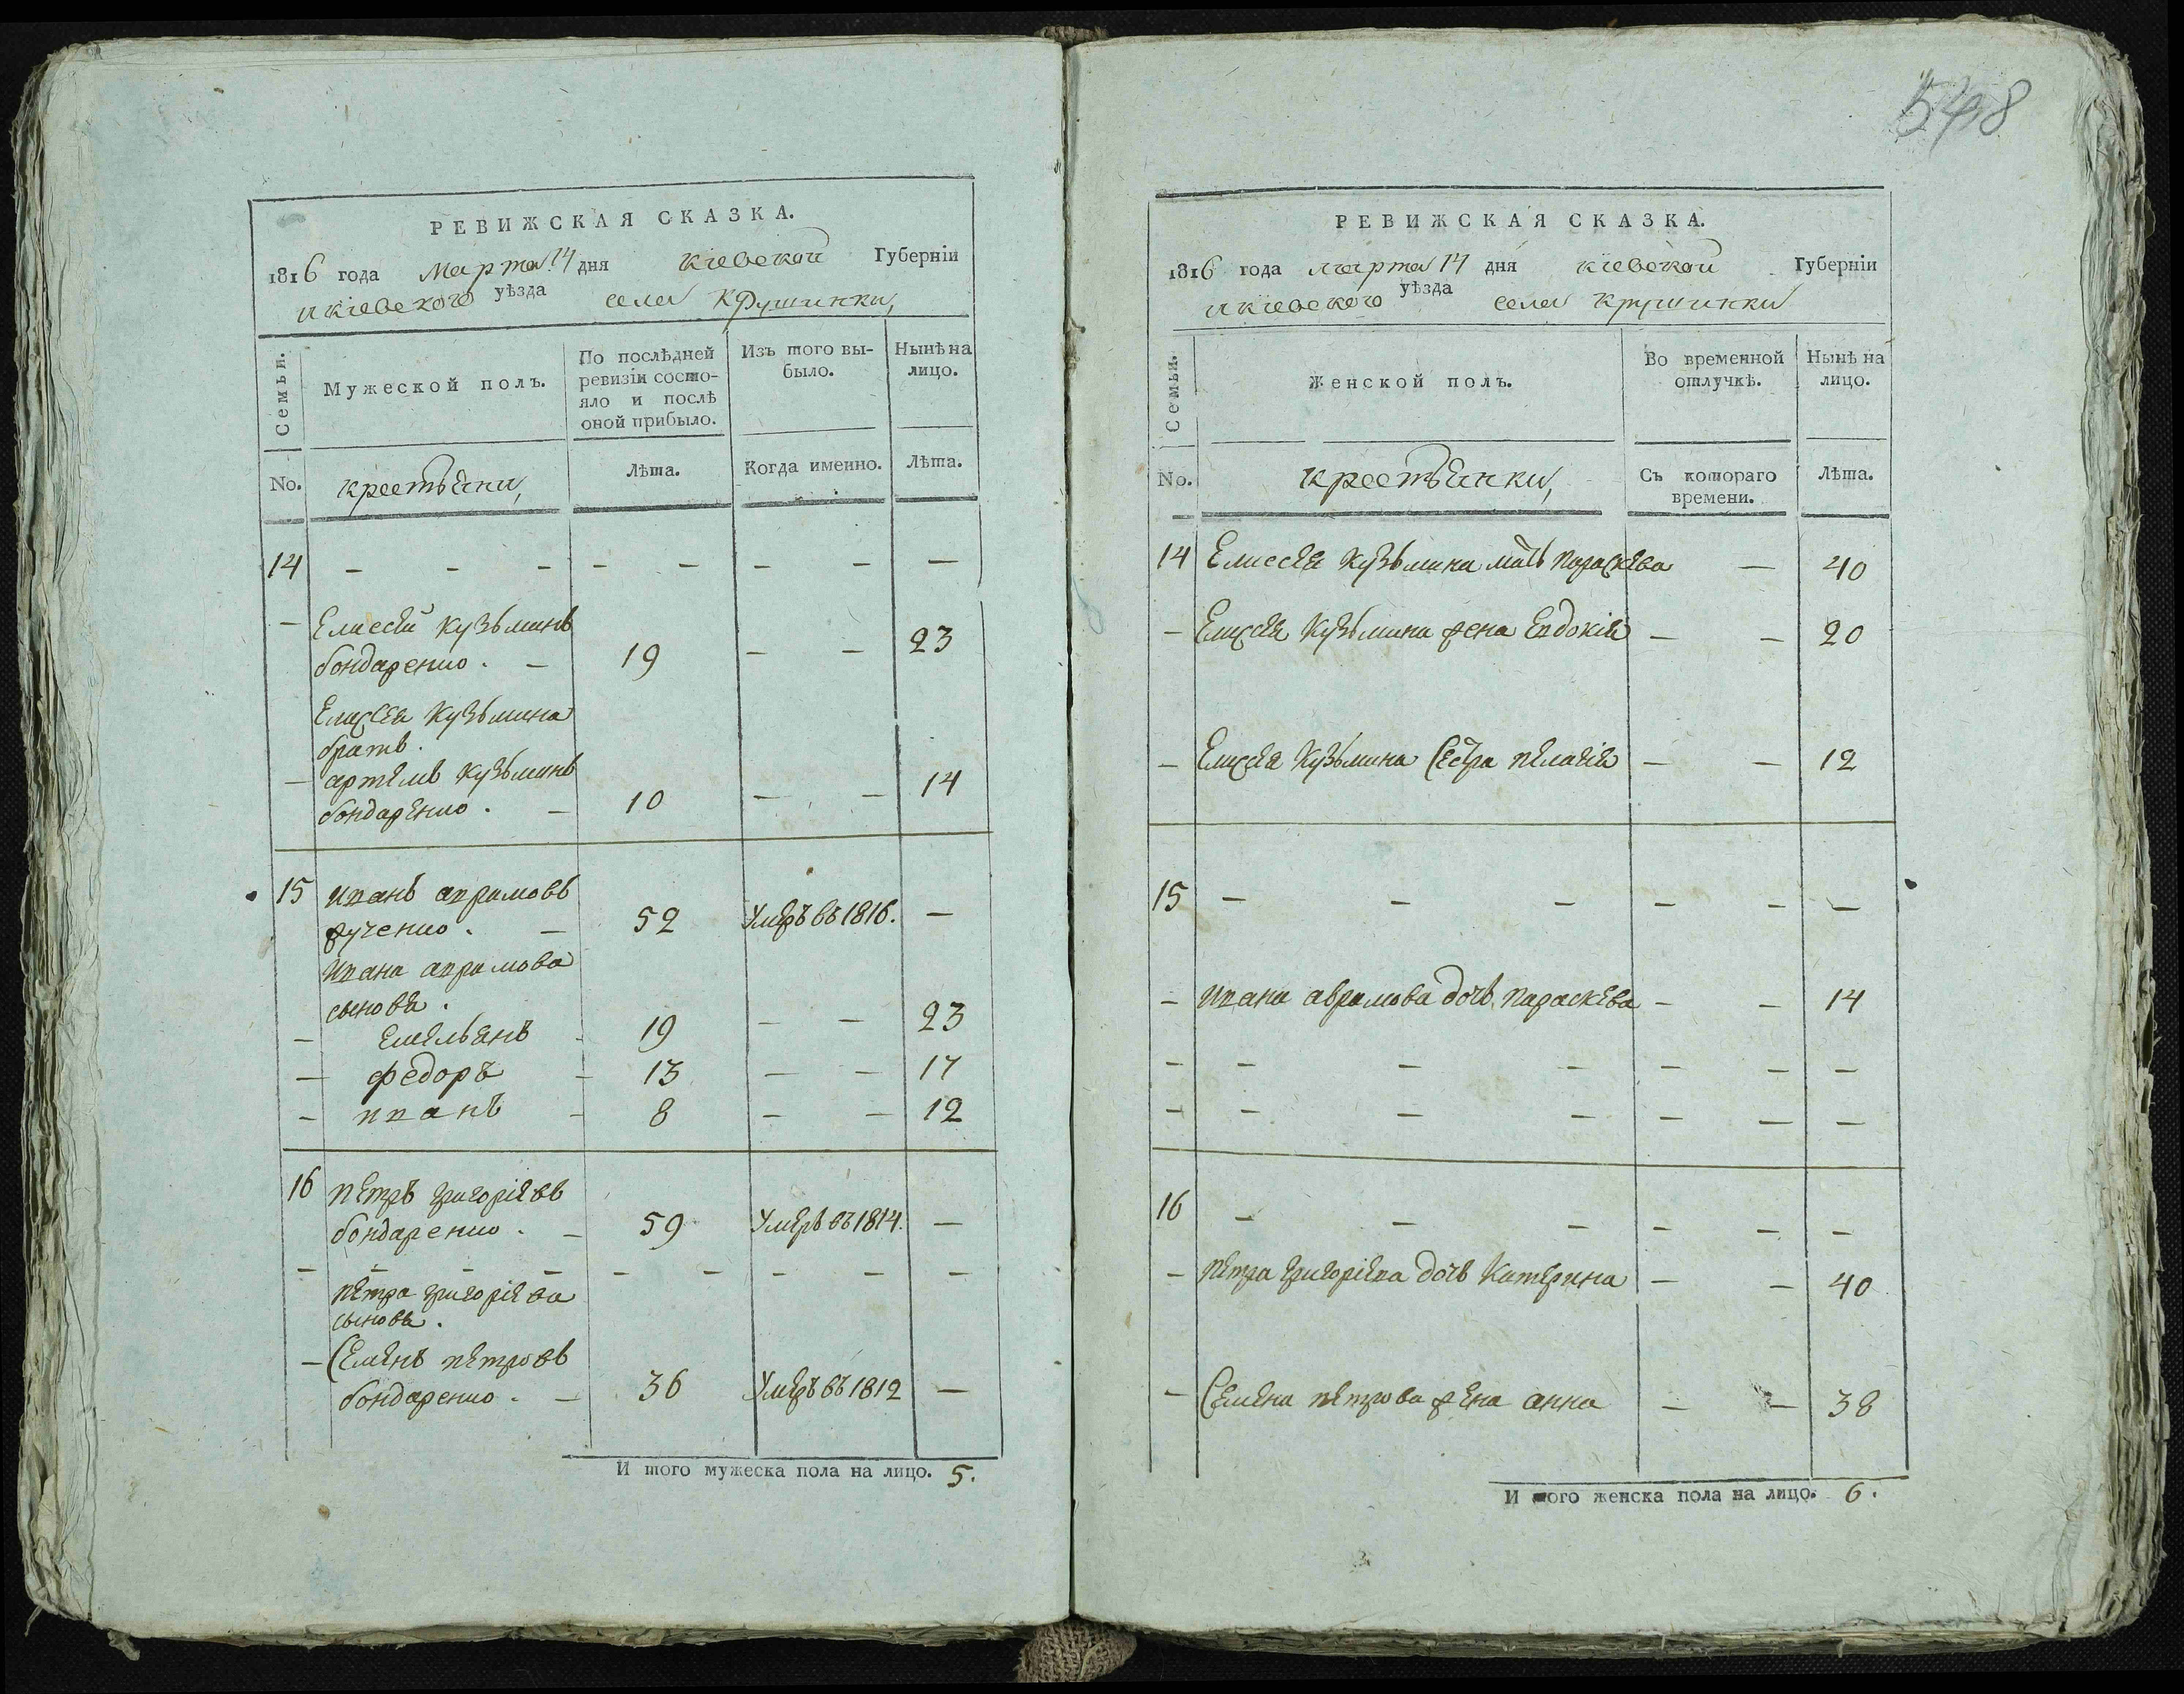 РЕВИЖСКАЯ СКАЗКА.
1816 года Марта 14 дня Кіевской Губерніи
и кіевского уѣзда села Крушинки,
Семьи. Мужеской полъ. По послѣдней ревизіи состояло и послѣ оной прибыло. Изъ того выбыло. Нынѣ на лицо.
No. крестьяни, Лѣта. Когда именно. Лѣта.
14 - - - - - - - -
- Елисей Кузьминъ
бондаренко. - 19 - - 23
Елисея Кузьмина
братъ.
- артемъ Кузьминъ
бондаренко. - 10 - - 14
15 иванъ аврамовъ
жученко. - 52 Умеръ въ 1816. -
Ивана аврамова
сыновя.
- Емельянъ - 19 - - 23
- федоръ - 13 - - 17
- иванъ - 8 - - 12
16 петръ григоріевъ
бондаренко. - 59 Умеръ въ 1814. -
- - - - - - - - -
петра григоріева
сыновя.
- Семенъ петровъ
бондаренко. - 36 Умеръ въ 1812 -
И того мужеска пола на лицо. 5.
548
РЕВИЖСКАЯ СКАЗКА.
1816 года марта 14 дня кіевской Губерніи
и кіевского уѣзда села крушинки
Семьи. Женской полъ. Во временной отлучкѣ. Нынѣ на лицо.
No. крестьянки, Съ котораго времени. Лѣта.
14 Елисея Кузьмина мать Параскева - 40
- Елисея Кузьмина жена Евдокія - - 20
- Елисея Кузьмина Сестра пелагія - - 12
15 - - - - - -
- Ивана аврамова дочь Параскева - - 14
- - - - - - -
- - - - - - -
16 - - - - - -
- петра григоріева дочь Катерина - - 40
- Семена петрова жена анна - - 38
И того женска пола на лицо. 6.